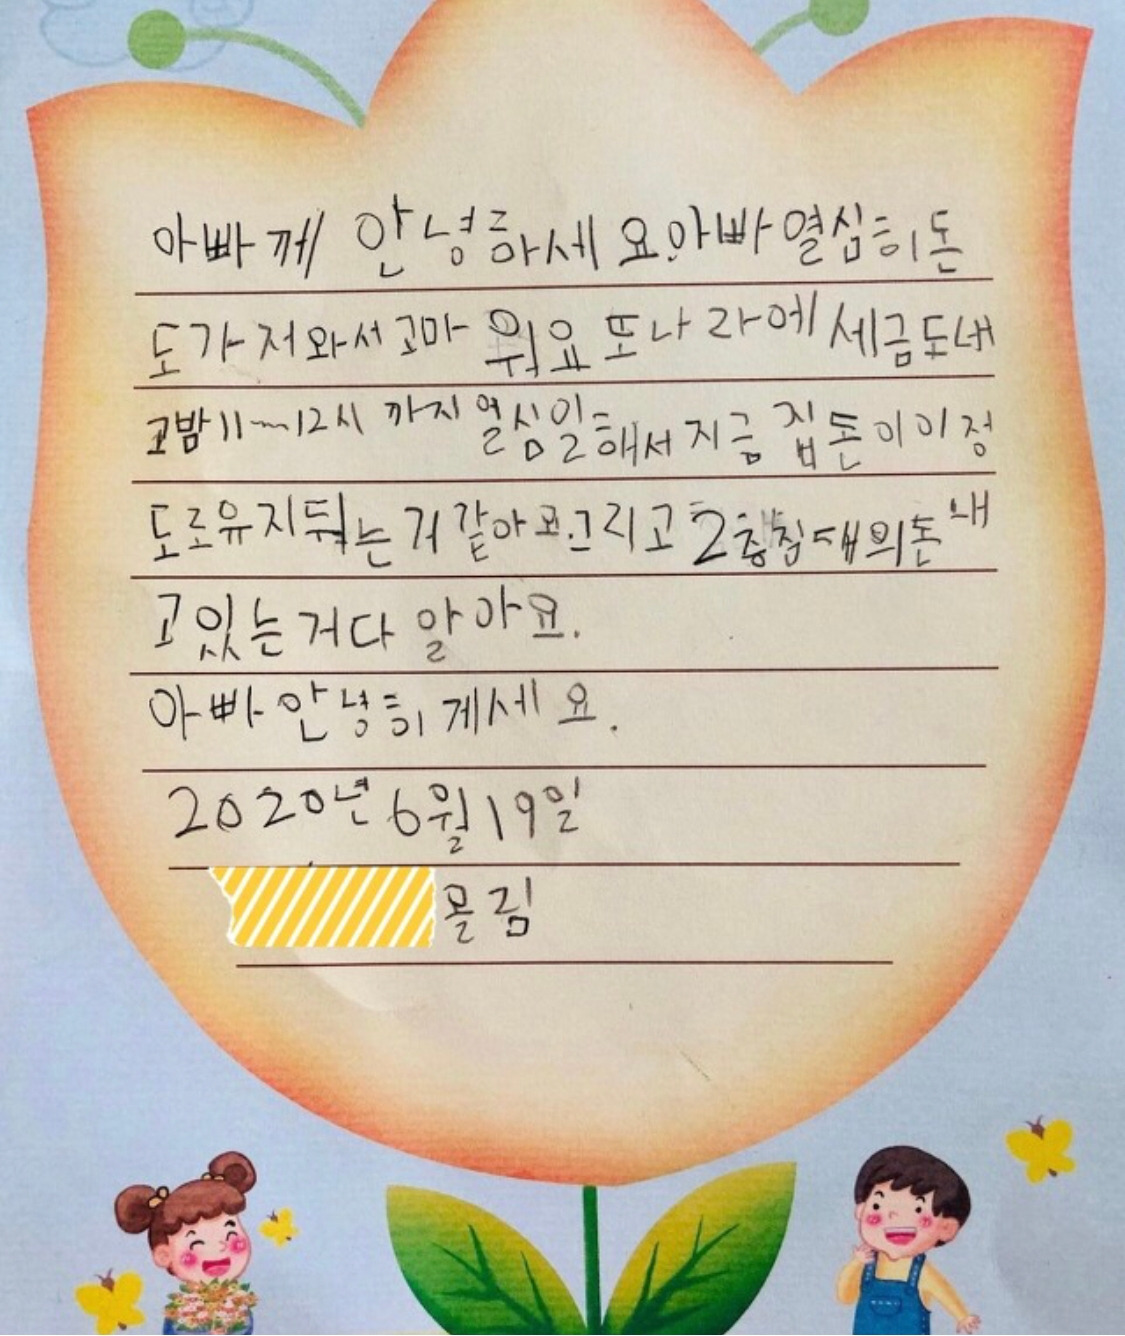 아빠께 안녕하세요.아빠 열심히 돈
도 가저와서 고마워요 또 나라에 세금도 내
고 밤 11~12시 까지 열심일해서 지금 집 돈이 이정
도로 유지뒤는거 같아요 그리고 2층침대의 돈 내
고 있는거 다 알아요.
아빠 안녕히 게세요.
2020년 6월 19일
몰림